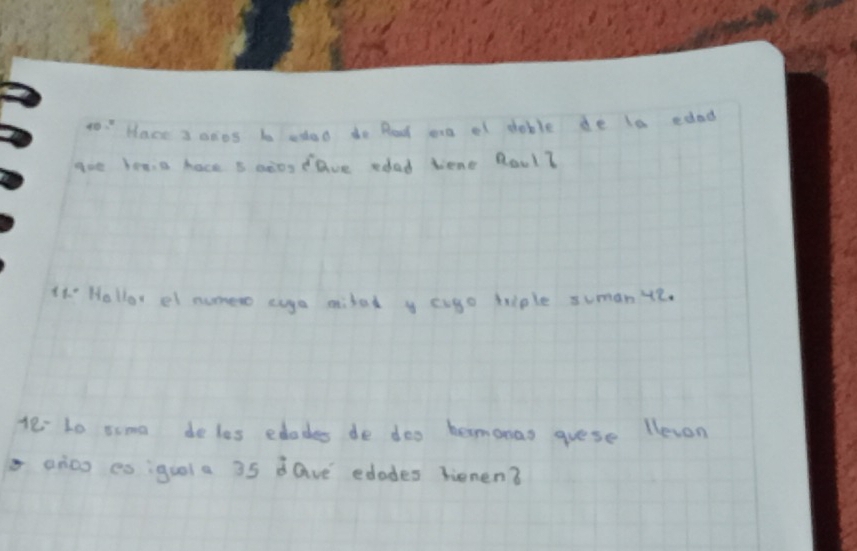 10.- Hace 3 años la edad de Raul era el doble de la edad
que tenia hace 5 años ¿Que edad tiene Raul?
11.- Hallar el numero cuya mitad y cuyo triple suman 42.
12- La suma de las edades de dos hermanas que se llevan
años es igual a 35 ¿Qué edades tienen?